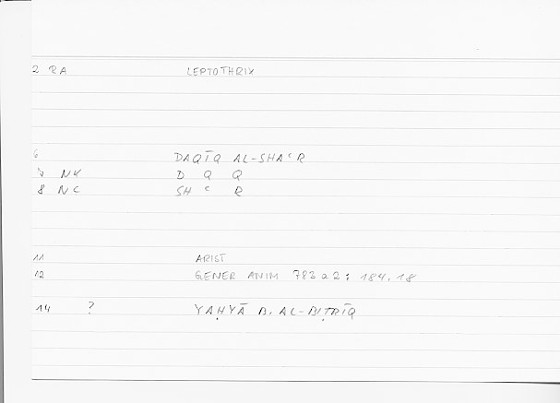 2 RA LEPTOTHRIX
6 DAQĪQ AL-SHAʿR
7 NK D Q Q
8 NC SH ʿ R
11 ARIST
12 GENER ANIM 783 a 2 ; 184.18
14 ? YAḤYĀ B. AL-BIṬRĪQ